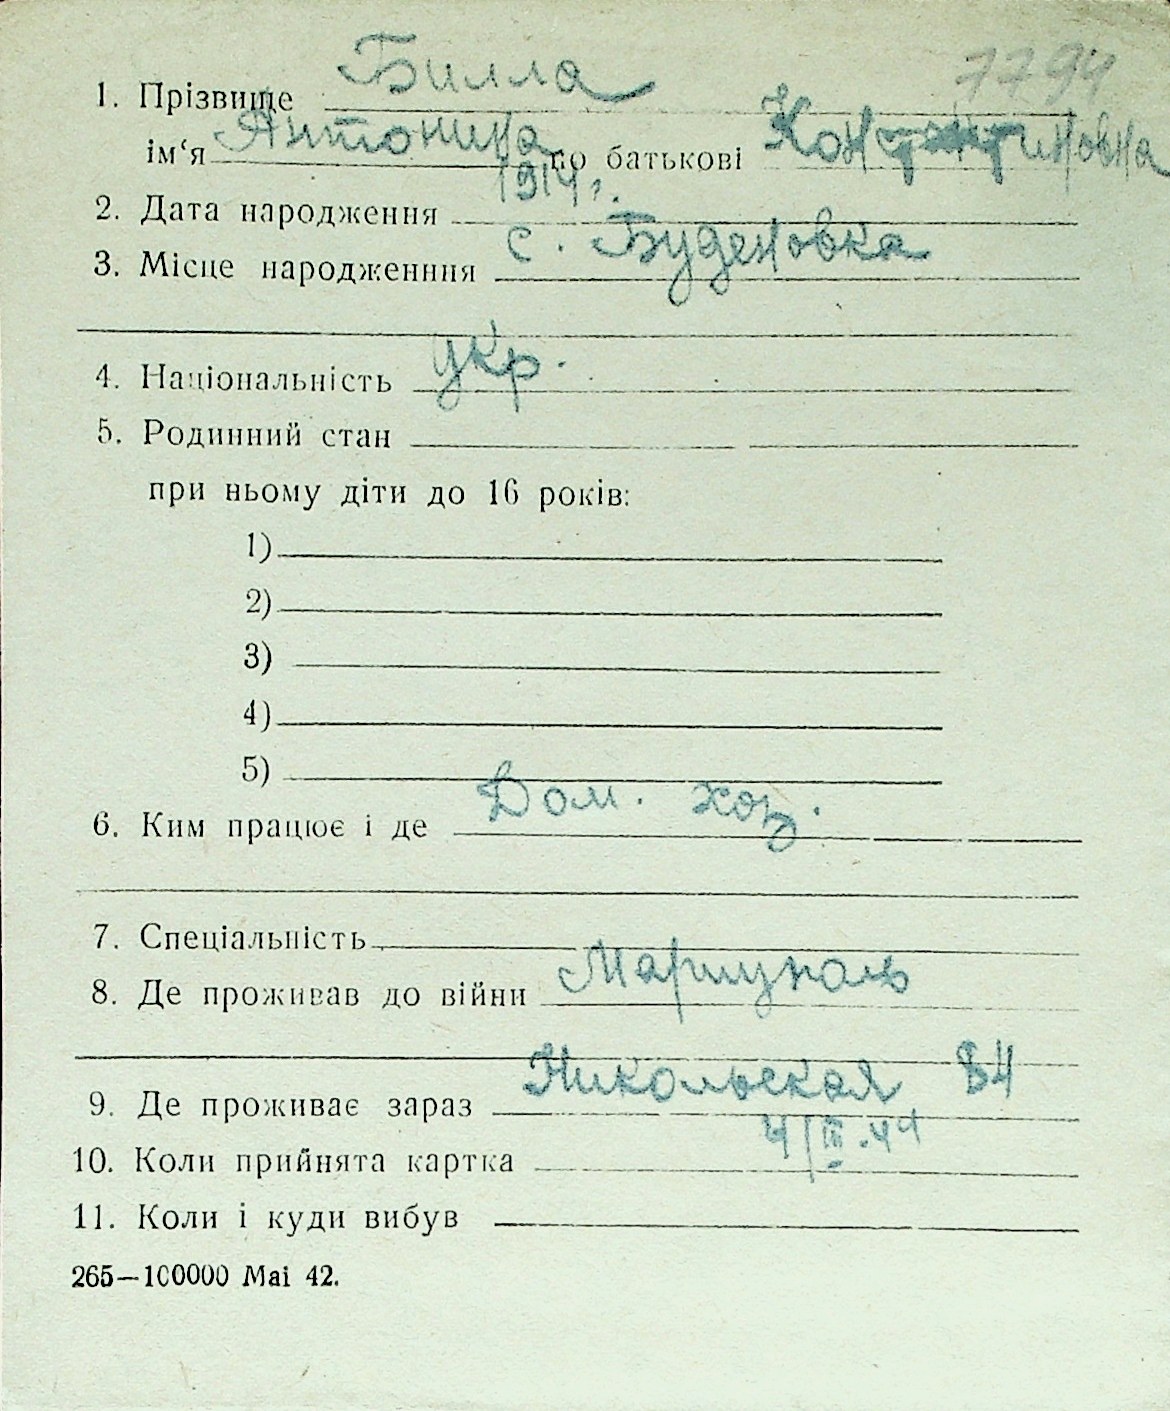 7794
1. Прізвище Билла
ім‘я Антонина по батькові Константиновна
2. Дата народження 1914 г.
3. Місце народженння с. Буденовка
4. Національність укр.
5. Родинний стан
при ньому діти до 16 років:
1)
2)
3)
4)
5)
6. Ким працює і де Дом. хоз.
7. Спеціальність
8. Де проживав до війни Мариуполь
9. Де проживає зараз Никольская 84
10. Коли прийнята картка 4/III.44
11. Коли і куди вибув
265—100000 Mai 42.